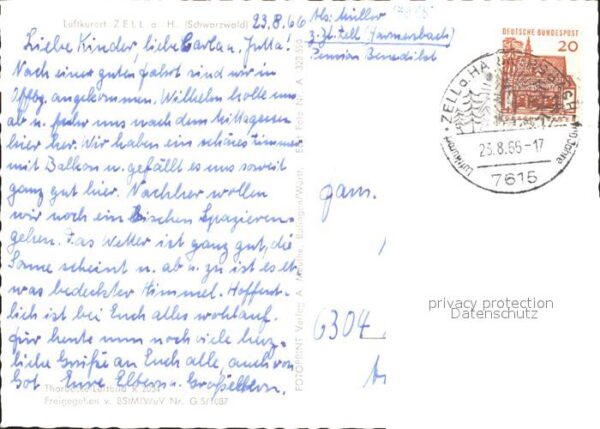 Luftkurort ZELL a. H. (Schwarzwald)
23.8.66
Abs: Müller
z. Zt. Zell (Harmersbach)
Pension Benedikt
Liebe Kinder, liebe Carla u. Jutta!
Nach einer guten Fahrt sind wir in
Offbg. angekommen. Wilhelm holte uns
ab u. fuhr uns nach dem Mittagessen
hier her. Wir haben ein schönes Zimmer
mit Balkon u. gefällt es uns soweit
ganz gut hier. Nachher wollen
wir noch ein bischen Spazieren-
gehen. Das Wetter ist ganz gut, die
Sonne scheint u. ab u. zu ist es et-
was bedeckter Himmel. Hoffent-
lich ist bei Euch alles wohlauf.
Für heute nun noch viele herz-
liche Grüße an Euch alle, auch von
Eure Eltern u. Großeltern.
Freigegeben v. BStMfWuV Nr. G 5/1087
FOTOPRINT Verlag A.
DEUTSCHE BUNDESPOST
20
ZELL a. HARMERSBACH
23.8.66-17
Luftkurort
7615
Fam.
6304
privacy protection
Datenschutz